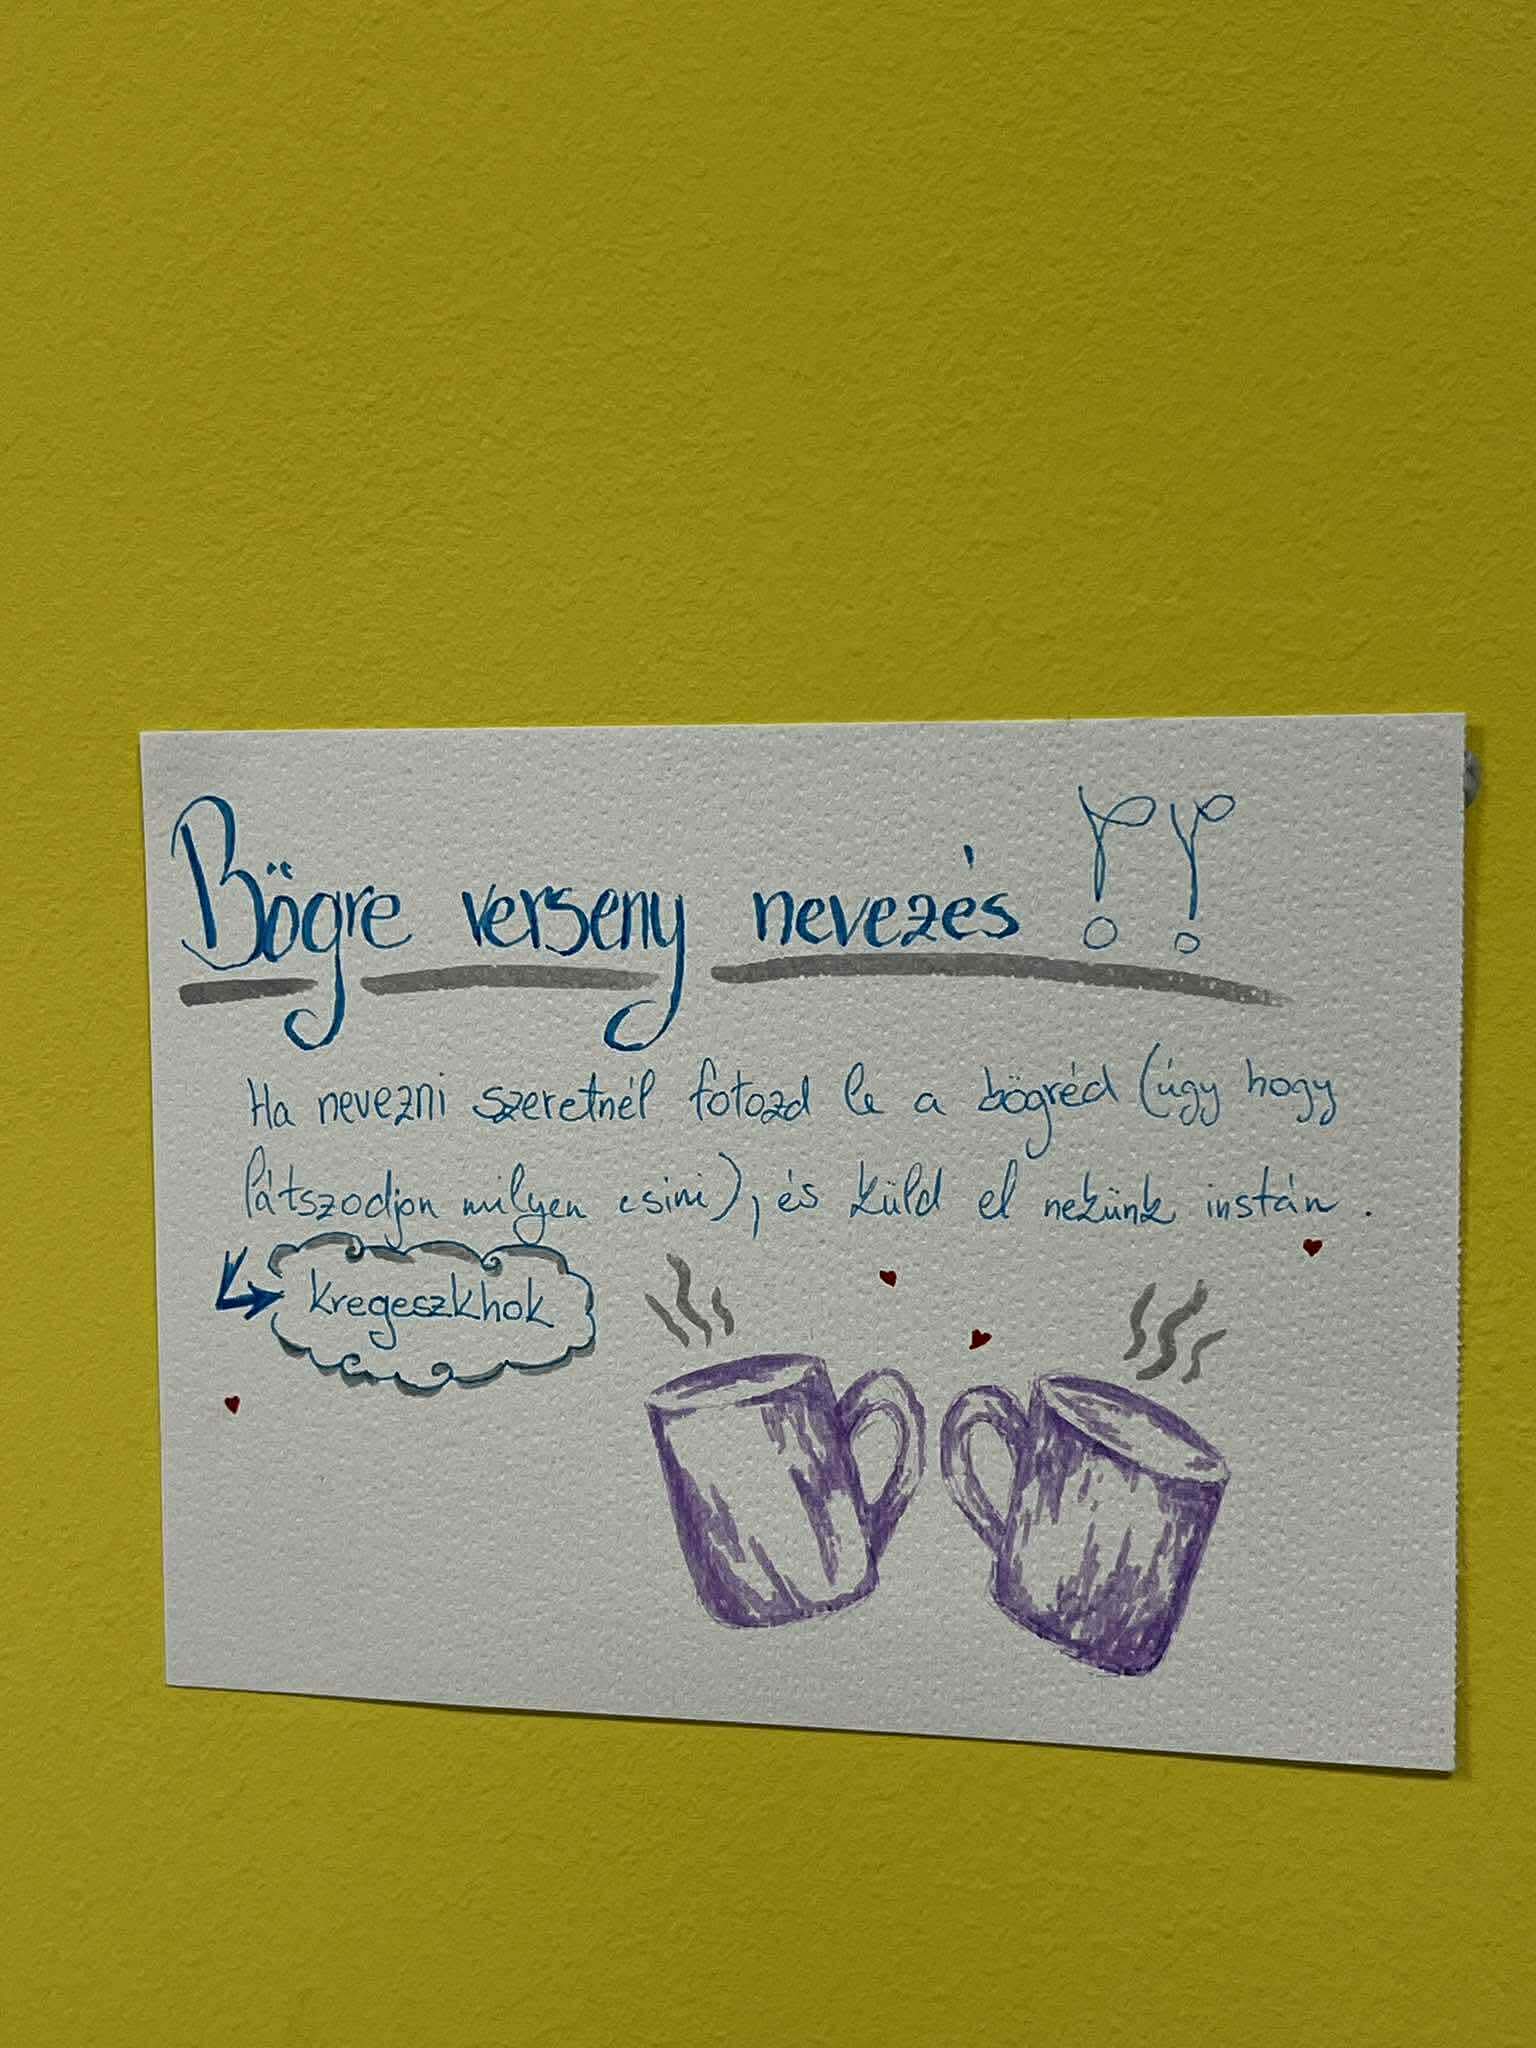 Bögre verseny nevezés !!
Ha nevezni szeretnél fotozd le a bögréd (úgy hogy
látszodjon milyen csini), és küld el nekünk instán.
kregeszkhok